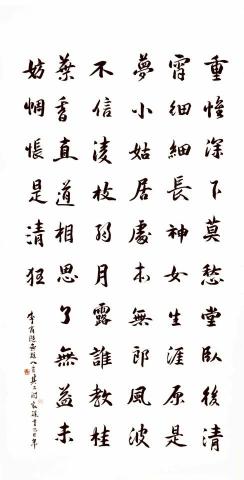 重帷深下莫愁堂臥後清
霄細細長神女生涯原是
夢小姑居處本無郎風波
不信淩枝弱月露誰教桂
葉香直道相思了無益未
妨惆悵是清狂
李商隱無題